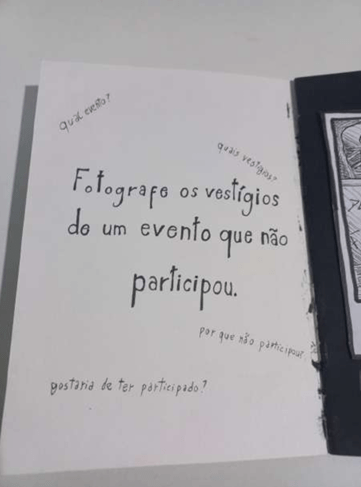 qual evento?
quais vestígios?
Fotografe os vestígios
de um evento que não
participou.
por que não participou?
gostaria de ter participado?